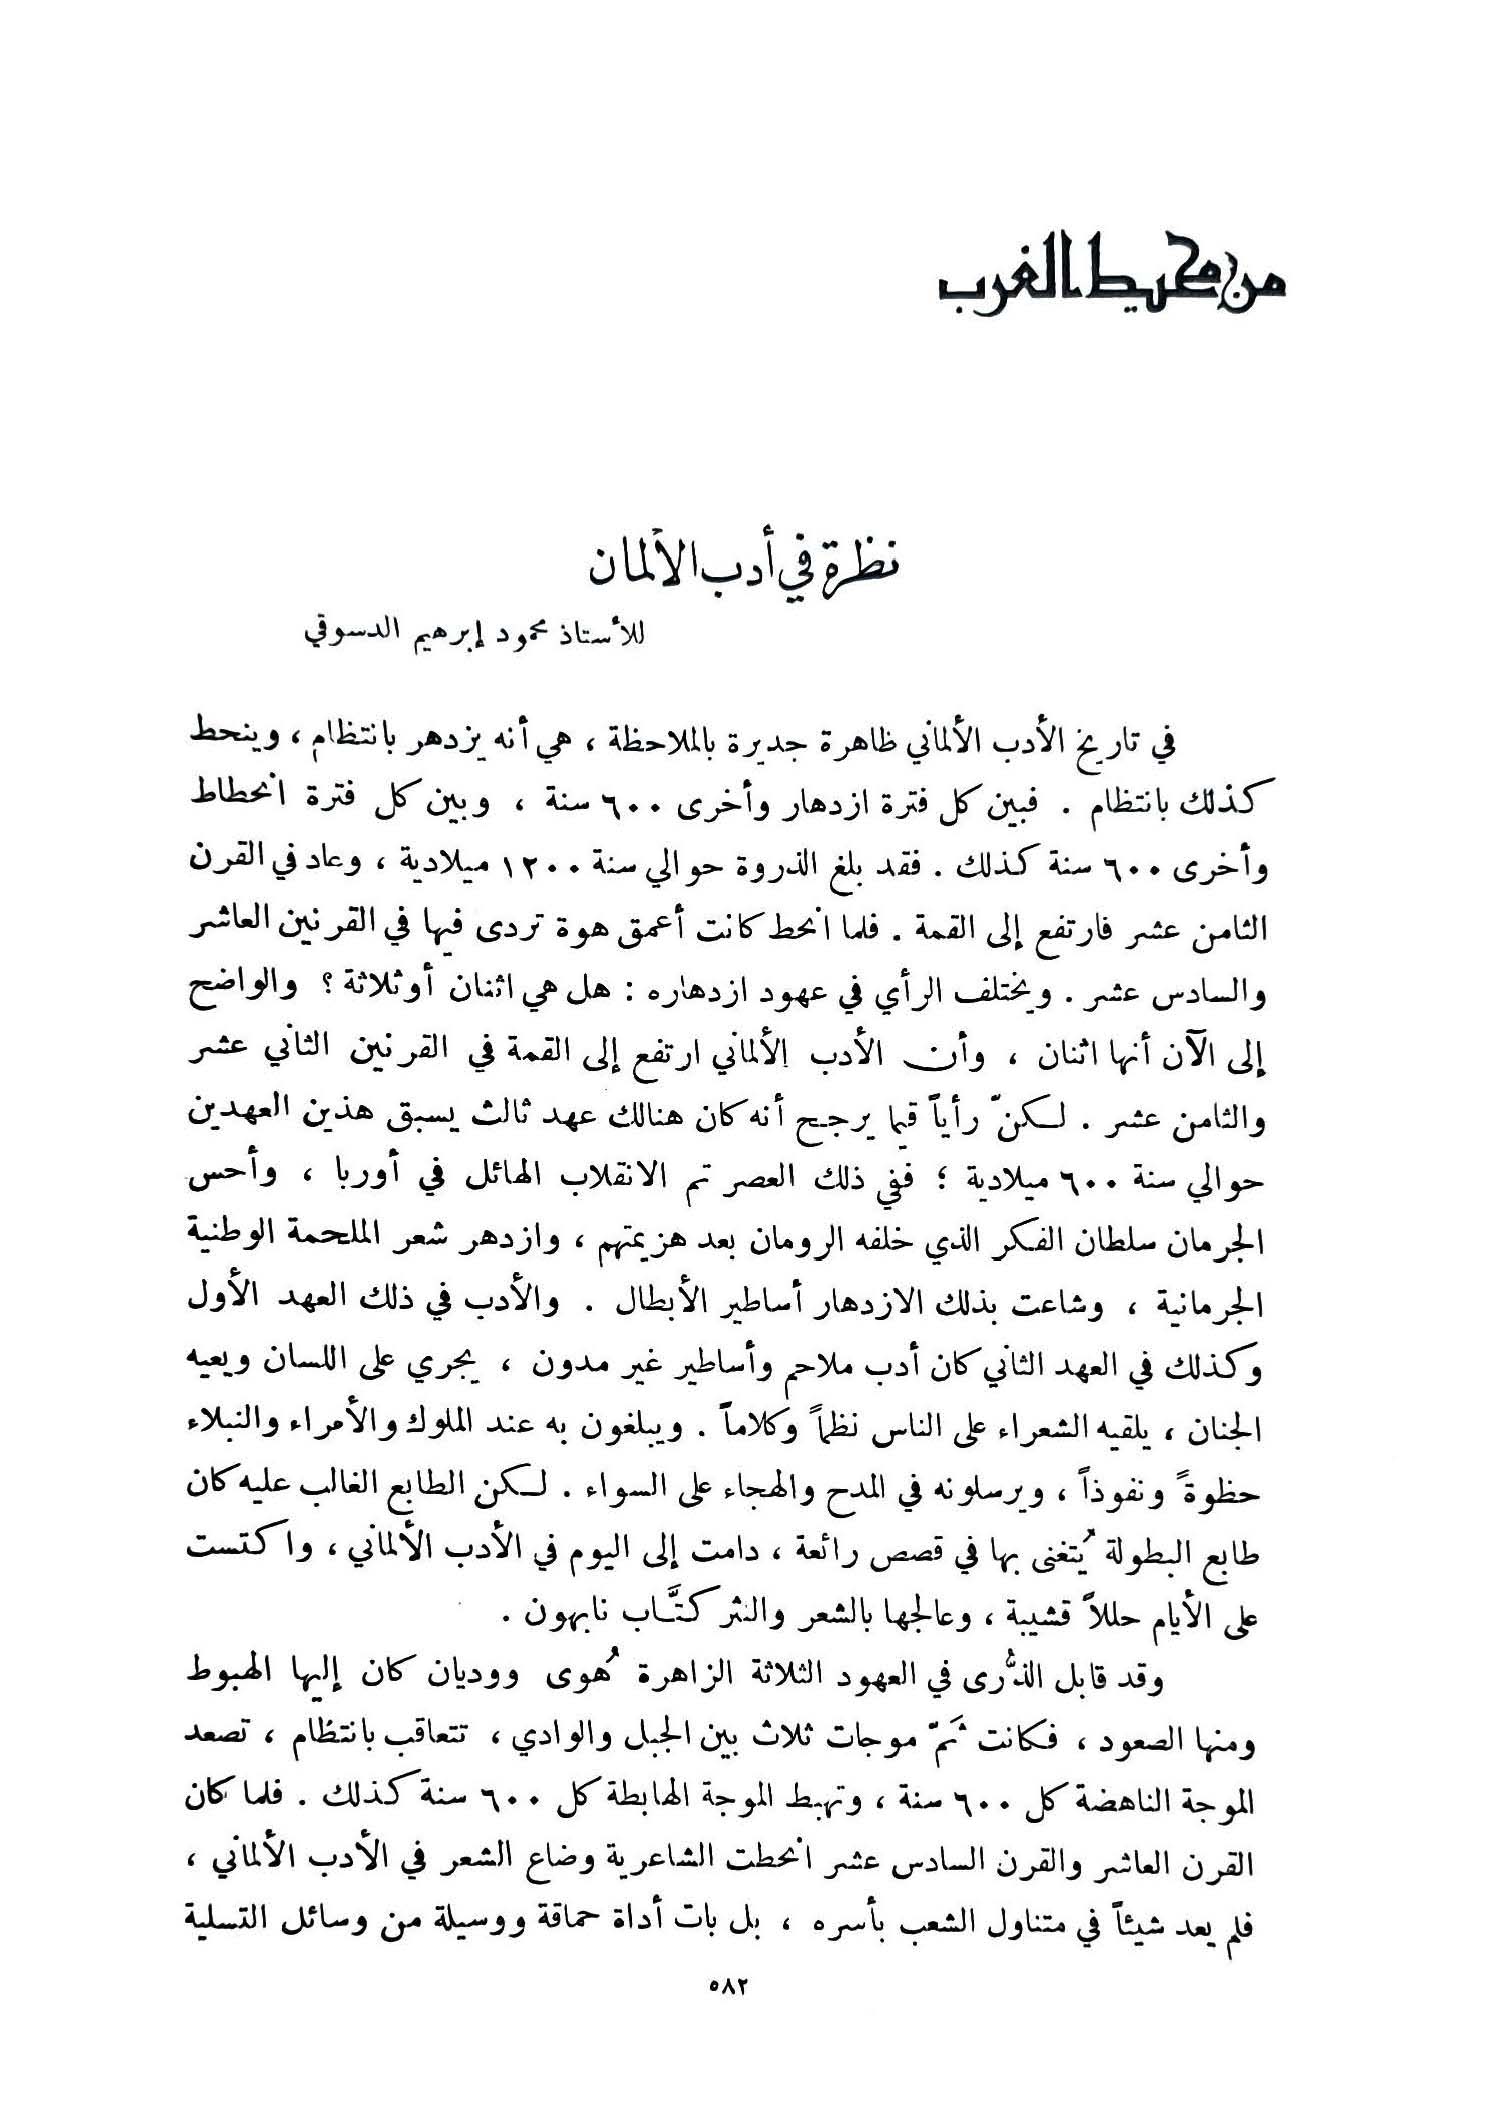 من محيط الغرب
نظرة في أدب الألمان
للأستاذ محمود إبرهيم الدسوقي
في تاريخ الأدب الألماني ظاهرة جديرة بالملاحظة ، هي أنه يزدهر بانتظام ، وينحط
كذلك بانتظام . فبين كل فترة ازدهار وأخرى ٦٠٠ سنة ، وبين كل فترة انحطاط
وأخرى ٦٠٠ سنة كذلك . فقد بلغ الذروة حوالي سنة ١٢٠٠ ميلادية ، وعاد في القرن
الثامن عشر فارتفع إلى القمة . فلما انحط كانت أعمق هوة تردى فيها في القرنين العاشر
والسادس عشر . ويختلف الرأي في عهود ازدهاره : هل هي اثنان أو ثلاثة ؟ والواضح
إلى الآن أنها اثنان ، وأن الأدب الألماني ارتفع إلى القمة في القرنين الثاني عشر
والثامن عشر . لكنّ رأياً قيما يرجح أنه كان هنالك عهد ثالث يسبق هذين العهدين
حوالي سنة ٦٠٠ ميلادية ؛ ففي ذلك العصر تم الانقلاب الهائل في أوربا ، وأحس
الجرمان سلطان الفكر الذي خلفه الرومان بعد هزيمتهم ، وازدهر شعر الملحمة الوطنية
الجرمانية ، وشاعت بذلك الازدهار أساطير الأبطال . والأدب في ذلك العهد الأول
وكذلك في العهد الثاني كان أدب ملاحم وأساطير غير مدون ، يجري على اللسان ويعيه
الجنان ، يلقيه الشعراء على الناس نظماً وكلاماً . ويبلغون به عند الملوك والأمراء والنبلاء
حظوةً ونفوذاً ، ويرسلونه في المدح والهجاء على السواء . لكن الطابع الغالب عليه كان
طابع البطولة يُتغنى بها في قصص رائعة ، دامت إلى اليوم في الأدب الألماني ، واكتست
على الأيام حللاً قشيبة ، وعالجها بالشعر والنثر كتَّاب نابهون .
وقد قابل الذُّرى في العهود الثلاثة الزاهرة هُوى ووديان كان إليها الهبوط
ومنها الصعود ، فكانت ثَمّ موجات ثلاث بين الجبل والوادي ، تتعاقب بانتظام ، تصعد
الموجة الناهضة كل ٦٠٠ سنة ، وتهبط الموجة الهابطة كل ٦٠٠ سنة كذلك . فلما كان
القرن العاشر والقرن السادس عشر انحطت الشاعرية وضاع الشعر في الأدب الألماني ،
فلم يعد شيئاً في متناول الشعب بأسره ، بل بات أداة حماقة ووسيلة من وسائل التسلية
٥٨٢